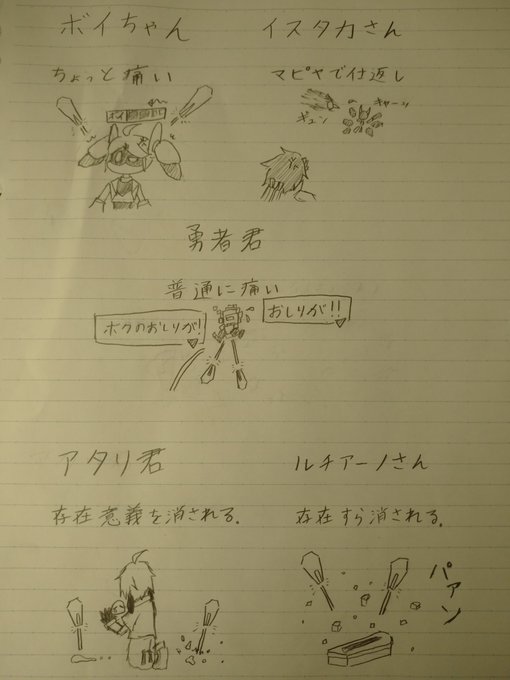 ボイちゃん
イスタカさん
ちょっと痛い
マピヤで仕返し
ギュン
キャーッ
勇者君
普通に痛い
ボクのおしりが!
おしりが!!
アタリ君
ルチアーノさん
存在意義を消される.
存在すら消される.
パアン